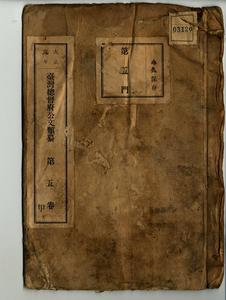 03120
永久保存
第五門
大正
臺灣總督府公文類纂 第五卷
甲